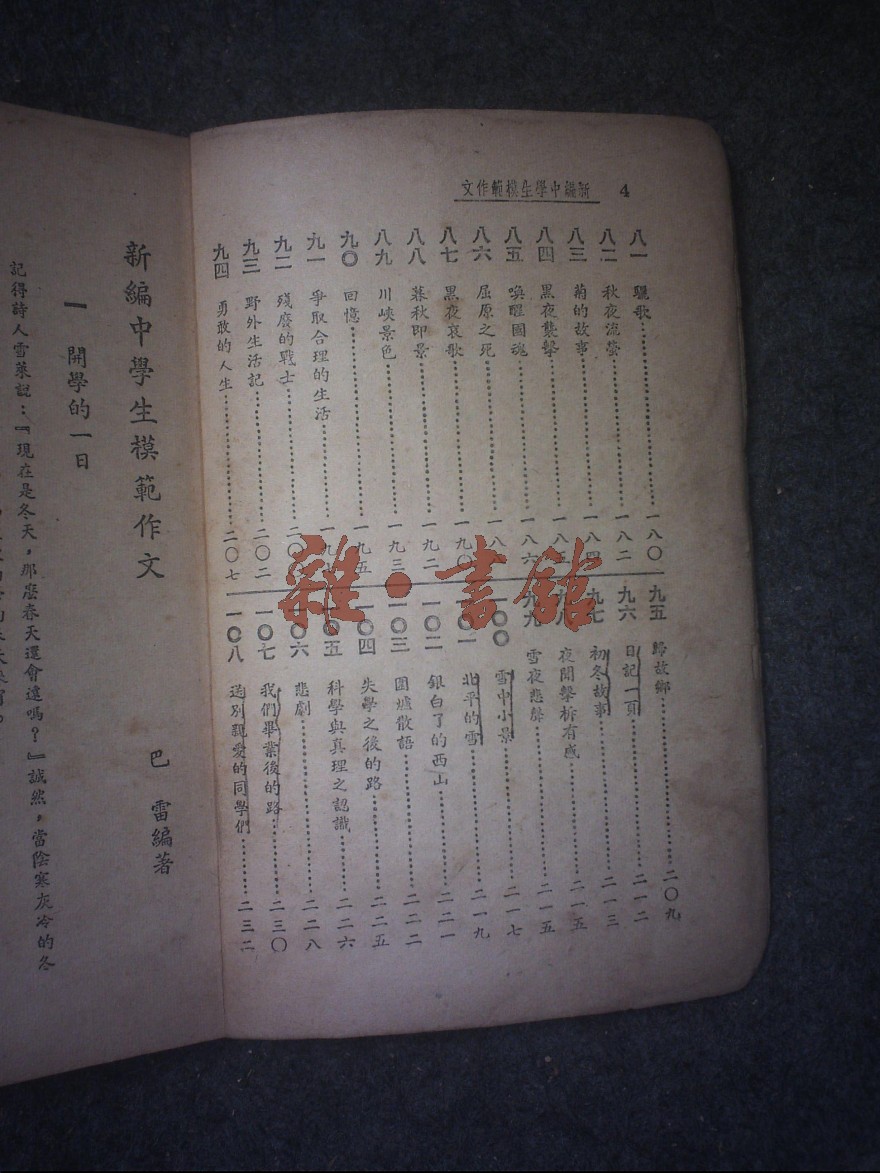 4 新編中學生模範作文
八一 驪歌 一八〇
八二 秋夜流螢 一八二
八三 菊的故事 一八四
八四 黑夜襲擊 一八五
八五 喚醒國魂 一八六
八六 屈原之死 一八
八七 黑夜哀歌 一九〇
八八 暮秋即景 一九二
八九 川峽景色 一九三
九〇 回憶 一九五
九一 爭取合理的生活 一九
九二 殘廢的戰士 二〇
九三 野外生活記 二〇二
九四 勇敢的人生 二〇七
九五 歸故鄉 二〇九
九六 日記一頁 二一二
九七 初冬故事 二一三
九八 夜聞擊柝有感 二一五
九九 雪夜悲聲 二一五
一〇〇 雪中小景 二一七
一〇一 北平的雪 二一九
一〇二 銀白了的西山 二二一
一〇三 圍爐散語 二二二
一〇四 失學之後的路 二二五
一〇五 科學與真理之認識 二二六
一〇六 悲劇 二二八
一〇七 我們畢業後的路 二三〇
一〇八 送別親愛的同學們 二三二
新編中學生模範作文
巴雷編著
一 開學的一日
記得詩人雪萊說：『現在是冬天，那麼春天還會遠嗎？』誠然，當陰寒灰冷的冬
雜·書館